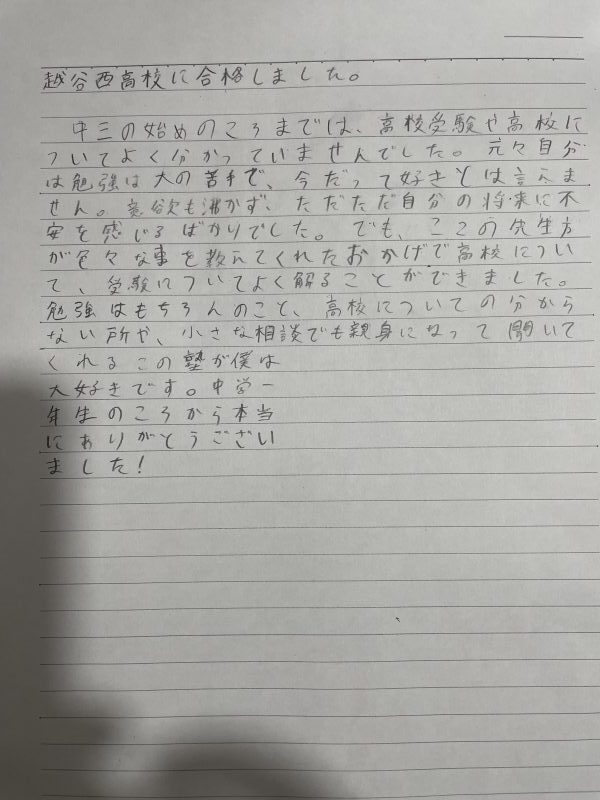 越谷西高校に合格しました。
中三の始めのころまでは、高校受験や高校に
ついてよく分かっていませんでした。元々自分
は勉強は大の苦手で、今だって好きとは言えま
せん。意欲も沸かず、ただただ自分の将来に不
安を感じるばかりでした。でも、ここの先生方
が色々な事を教えてくれたおかげで高校につい
て、受験についてよく解ることができました。
勉強はもちろんのこと、高校についての分から
ない所や、小さな相談でも親身になって聞いて
くれるこの塾が僕は
大好きです。中学一
年生のころから本当
にありがとうござい
ました!